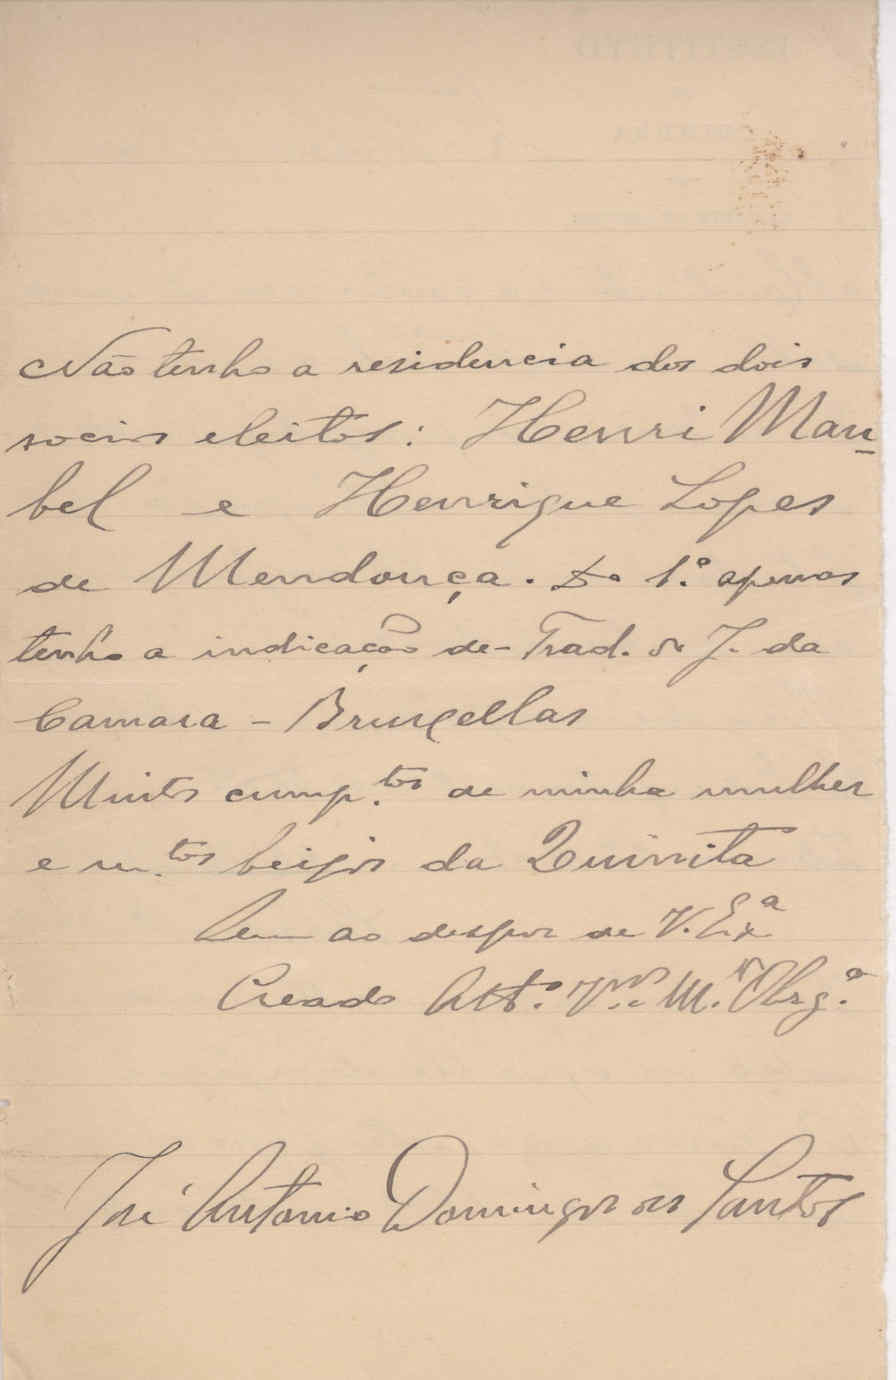 Não tenho a residencia dos dois
socios eleitos: Henri Mau-
bel e Henrique Lopes
de Mendonça. Do 1.º apenas
tenho a indicação de - Trad. de J. da
Camara - Bruxellas
Muitos cump.tos de minha mulher
e m.tos beijos da Quinita
ao dispor de V. Exª
Creado Att.º V.or M.to Obrg.º
José Antonio Domingos dos Santos